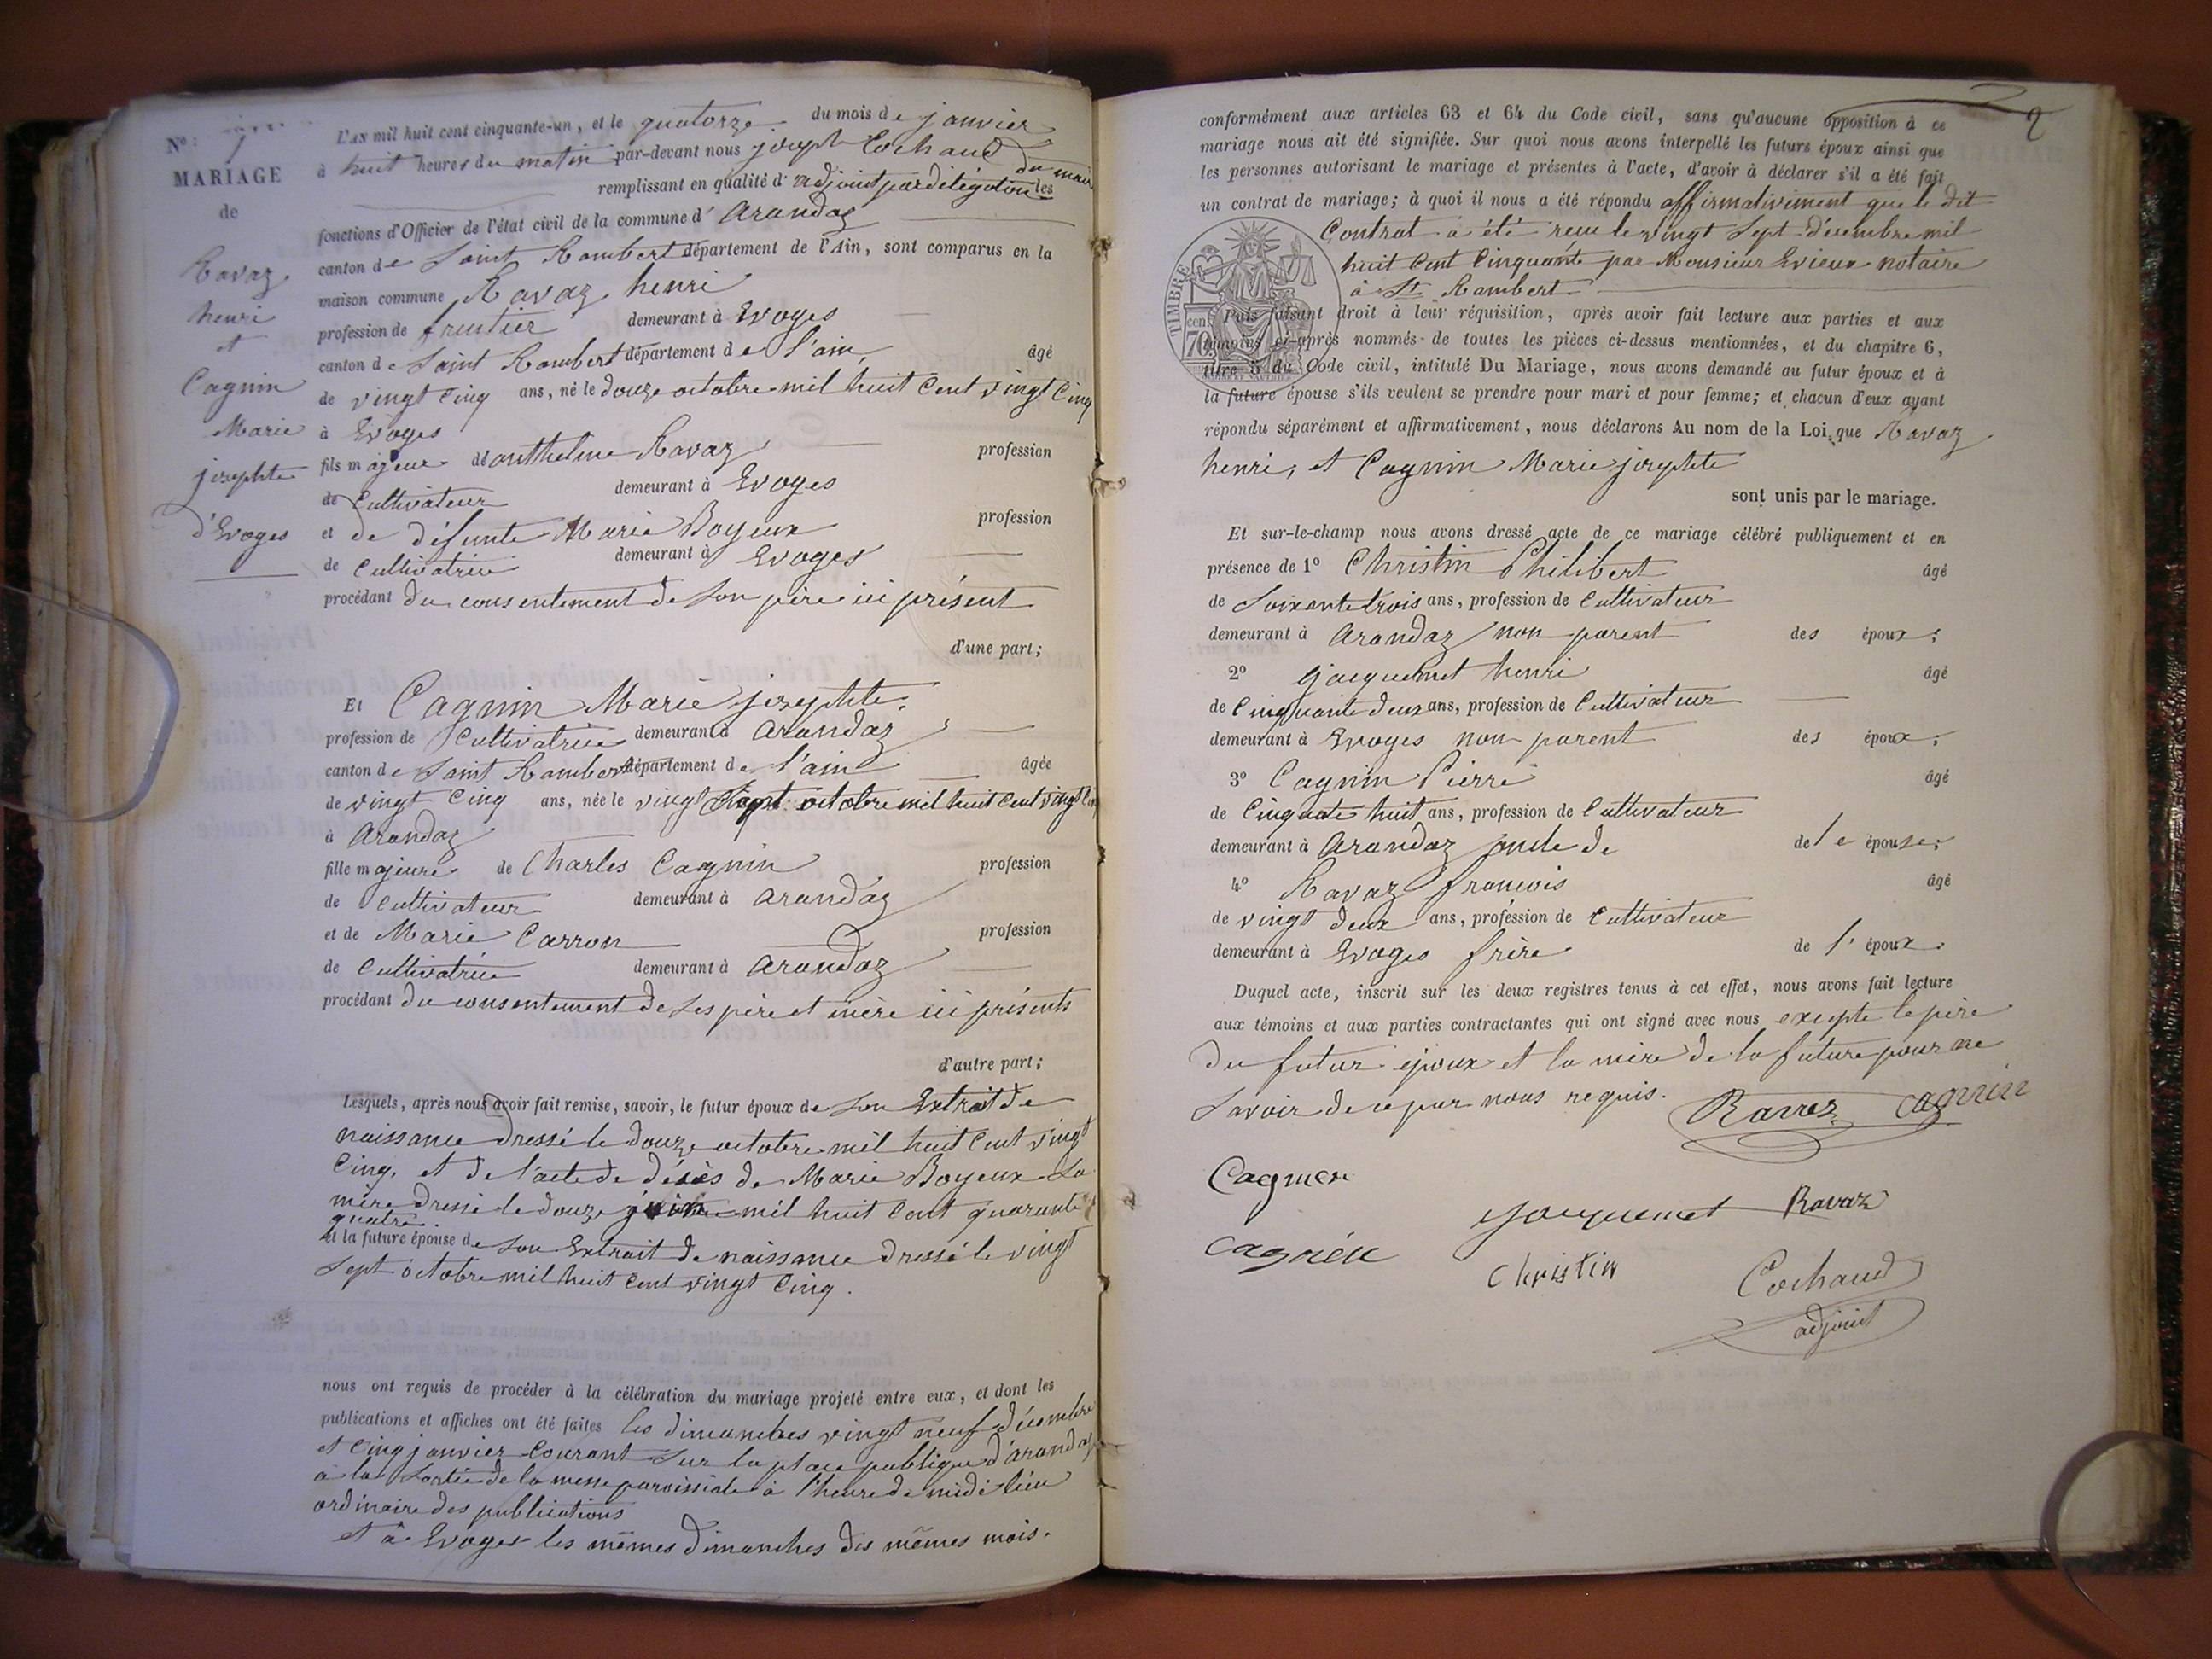 N° 1
MARIAGE
de
Ravaz
henri
et
Cagnin
Marie
josephte
d'Evoges
L'AN mil huit cent cinquante-un, et le quatorze du mois de janvier
à huit heures du matin par-devant nous joseph Cochaud
remplissant en qualité d'adjoint par délégation du maire les
fonctions d'Officier de l'état civil de la commune d'Arandaz
canton de Saint Rambert département de l'Ain, sont comparus en la
maison commune Ravaz henri
profession de fruitier demeurant à Evoges
canton de Saint Rambert département de l'ain âgé
de vingt cinq ans, né le douze octobre mil huit cent vingt cinq
à Evoges
fils majeur d'anthelme Ravaz profession
de Cultivateur demeurant à Evoges
et de défunte Marie Boyeux profession
de Cultivatrice demeurant à Evoges
procédant du consentement de son père ici présent
d'une part;
Et Cagnin Marie josephte
profession de Cultivatrice demeurant à Arandaz
canton de Saint Rambert département de l'ain âgée
de vingt cinq ans, née le vingt Sept octobre mil huit cent vingt cinq
à Arandaz
fille majeure de Charles Cagnin profession
de cultivateur demeurant à Arandaz
et de Marie Carron profession
de Cultivatrice demeurant à Arandaz
procédant du consentement de ses père et mère ici présents
d'autre part;
Lesquels, après nous avoir fait remise, savoir, le futur époux de son Extrait de
naissance dressé le douze octobre mil huit cent vingt
cinq, et de l'acte de décès de Marie Boyeux sa
mère dressé le douze juin mil huit cent quarante
quatre
et la future épouse de son Extrait de naissance dressé le vingt
sept octobre mil huit cent vingt cinq.
nous ont requis de procéder à la célébration du mariage projeté entre eux, et dont les
publications et affiches ont été faites les dimanches vingt neuf décembre
et cinq janvier courant sur la place publique d'arandaz
à la sortie de la messe paroissiale à l'heure de midi lieu
ordinaire des publications
et à Evoges les mêmes dimanches des mêmes mois.
2
conformément aux articles 63 et 64 du Code civil, sans qu'aucune opposition à ce
mariage nous ait été signifiée. Sur quoi nous avons interpellé les futurs époux ainsi que
les personnes autorisant le mariage et présentes à l'acte, d'avoir à déclarer s'il a été fait
un contrat de mariage; à quoi il nous a été répondu affirmativement que le dit
Contrat à été reçu le vingt Sept décembre mil
huit cent cinquante par Monsieur Evieux notaire
à St Rambert
TIMBRE
cent. 70
Puis faisant droit à leur réquisition, après avoir fait lecture aux parties et aux
témoins ci-après nommés de toutes les pièces ci-dessus mentionnées, et du chapitre 6,
titre 5 du Code civil, intitulé Du Mariage, nous avons demandé au futur époux et à
la future épouse s'ils veulent se prendre pour mari et pour femme; et chacun d'eux ayant
répondu séparément et affirmativement, nous déclarons Au nom de la Loi, que Ravaz
henri, et Cagnin Marie josephte
sont unis par le mariage.
Et sur-le-champ nous avons dressé acte de ce mariage célébré publiquement et en
présence de 1° Christin Philibert âgé
de Soixante trois ans, profession de Cultivateur
demeurant à Arandaz non parent des époux;
2° jacquemet henri âgé
de Cinquante deux ans, profession de Cultivateur
demeurant à Evoges non parent des époux;
3° Cagnin Pierre âgé
de Cinquate huit ans, profession de Cultivateur
demeurant à Arandaz oncle de de l e épouse;
4° Ravaz francois âgé
de vingt deux ans, profession de Cultivateur
demeurant à Evoges frère de l' époux.
Duquel acte, inscrit sur les deux registres tenus à cet effet, nous avons fait lecture
aux témoins et aux parties contractantes qui ont signé avec nous excepte le père
du futur époux et la mère de la future pour ne
savoir de ce par nous requis. Ravaz cagnin
Cagnin
jacquemet Ravaz
cagnin
Christin Cochaud
adjoint